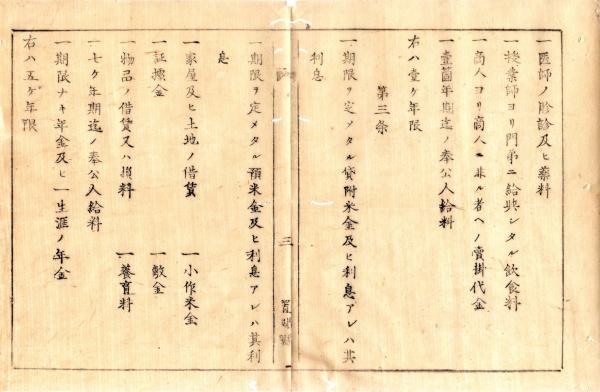 一医師ノ胗診及ヒ薬料
一授業師ヨリ門弟ニ給與シタル飲食料
一商人ヨリ商人ニ非ル者ヘノ賣掛代金
一壹箇年期迄ノ奉公人給料
右ハ壹ケ年限
第三条
一期限ヲ定メタル貸附米金及ヒ利息アレハ其
利息
三
一期限ヲ定メタル預米金及ヒ利息アレハ其利
息
一家屋及ヒ土地ノ借賃 一小作米金
一証據金 一敷金
一物品ノ借賃又ハ損料 一養育料
一七ケ年期迄ノ奉公人給料
一期限ナキ年金及ヒ一生涯ノ年金
右ハ五ケ年限